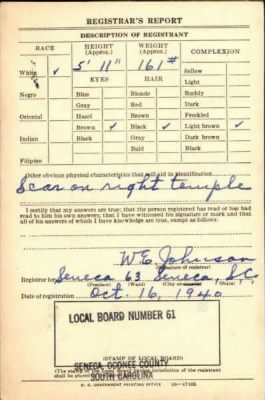 REGISTRAR'S REPORT
DESCRIPTION OF REGISTRANT
RACE HEIGHT (Approx.) WEIGHT (Approx.) COMPLEXION
White ✓ 5' 11" 161# Sallow
EYES HAIR Light
Negro Blue Blonde Ruddy
Gray Red Dark
Oriental Hazel Brown Freckled
Brown ✓ Black ✓ Light brown ✓
Indian Black Gray Dark brown
Bald Black
Filipino
Other obvious physical characteristics that will aid in identification
Scar on right temple
I certify that my answers are true; that the person registered has read or has had read to him his own answers; that I have witnessed his signature or mark and that all of his answers of which I have knowledge are true, except as follows:
W E Johnson
(Signature of registrar)
Registrar for Seneca 63 Seneca, S.C.
(Precinct) (Ward) (City or
Date of registration Oct. 16, 1940
LOCAL BOARD NUMBER 61
(STAMP OF LOCAL BOARD)
SENECA, OCONEE COUNTY
(The stamp of the Local Board
of the registrant
shall be placed
SOUTH CAROLINA
U. S. GOVERNMENT PRINTING OFFICE 16—17105